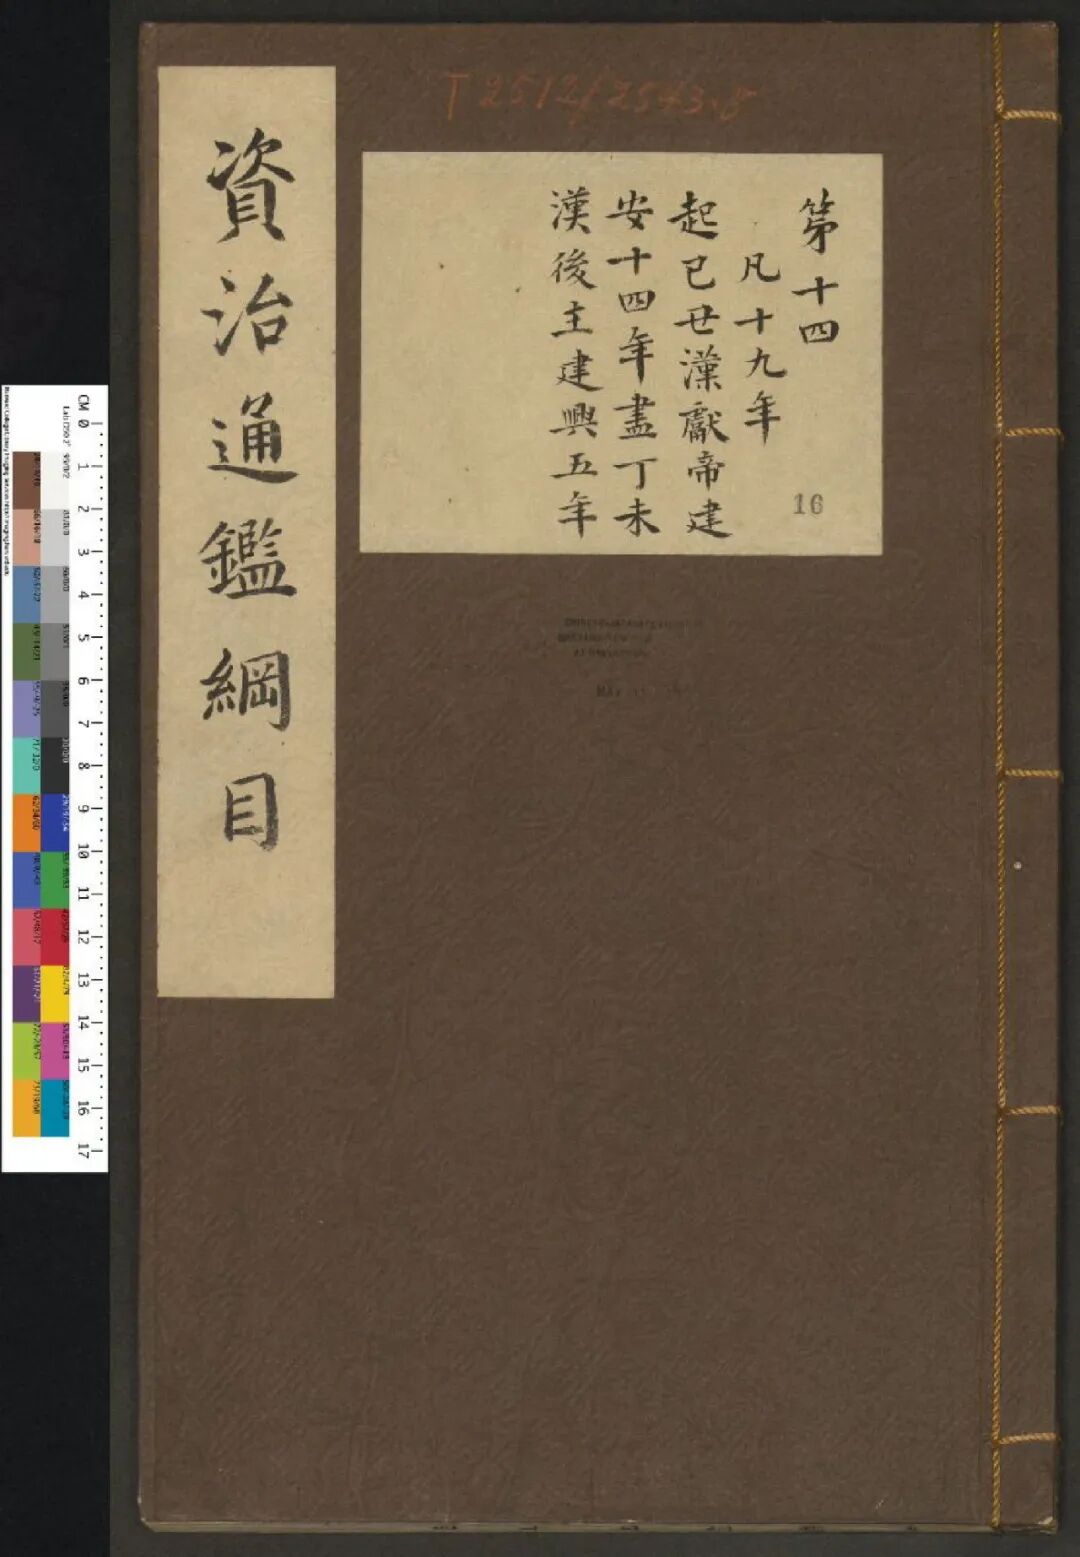 資治通鑑綱目
T 2512/2543.8
第十四
凡十九年
起己丑漢獻帝建
安十四年盡丁未
漢後主建興五年
16
CM 0 1 2 3 4 5 6 7 8 9 10 11 12 13 14 15 16 17